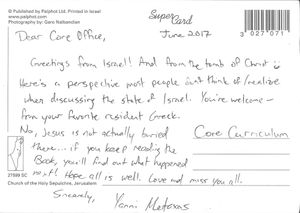 © Published by Palphot Ltd. Printed in Israel
www.palphot.com
Photography by: Garo Nalbandian
Super
Card
3 027071
June 2017
Dear Core Office,
Greetings from Israel! And from the tomb of Christ ☺
Here's a perspective most people don't think of/realize
when discussing the state of Israel. You're welcome –
from your favorite resident Greek.
No, Jesus is not actually buried
there... if you keep reading the
Book, you'll find out what happened
next! Hope all is well. Love and miss you all.
Sincerely,
Yanni
Core Curriculum
27589 SC
Church of the Holy Sepulchre, Jerusalem